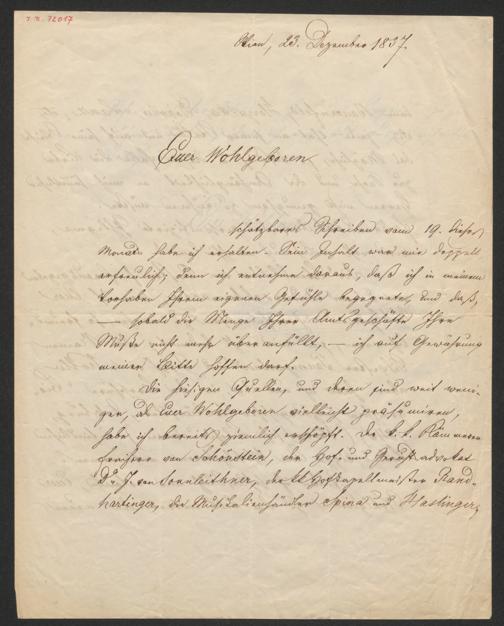 I.N. 72017
Wien, 23. Dezember 1857.
Euer Wohlgeboren
schätzbares Schreiben vom 19. dieses
Monats habe ich erhalten. Sein Inhalt war mir doppelt
erfreulich; denn ich entnehme daraus, daß ich in meinem
Vorhaben Ihrem eigenen Gefühle begegnete, und daß,
— sobald die Menge Ihrer Amtsgeschäfte Ihre
Muße nicht mehr überanfüllt, — ich auf Gewährung
meiner Bitte hoffen darf.
Die hiesigen Quellen, und deren sind weit weni-
ger, als Euer Wohlgeboren vielleicht präsumiren,
habe ich bereits ziemlich erschöpft. Der k. k. Kämmerer
Freiherr von Schönstein, der Hof- und Gerichtsadvokat
Dr. J. von Sonnleithner, der Hofkapellmeister Rand-
hartinger, die Musikalienhändler Spina und Haslinger,